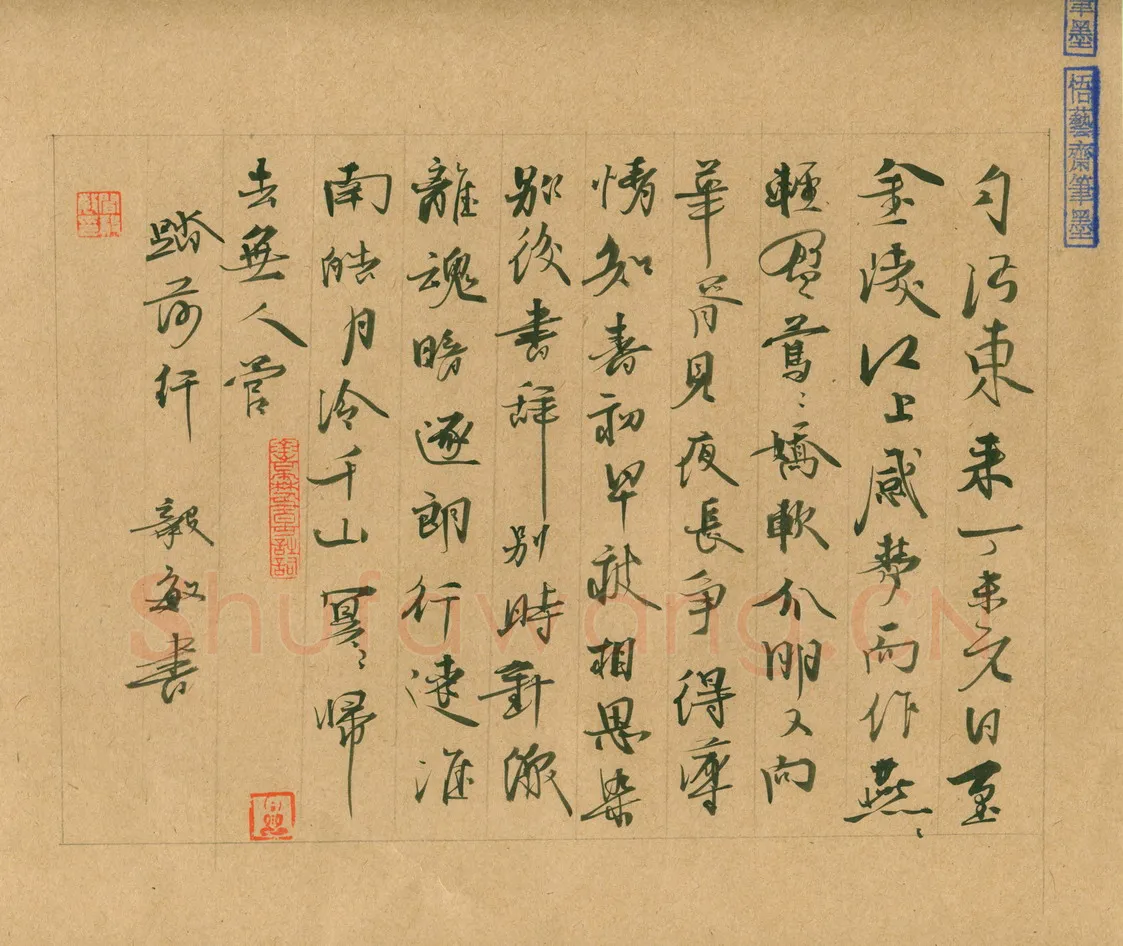 自沔東来丁未元日至
金陵江上感夢而作燕〻
輕盈鶯〻嬌軟分明又向
華胥見夜長爭得薄
情知春初早被相思染
别後書辞别時針線
離魂暗逐郎行遠淮
南皓月冷千山冥〻歸
去無人管
踏莎行 毅敏書
筆墨
悟藝齋筆墨
Shufawang.CN